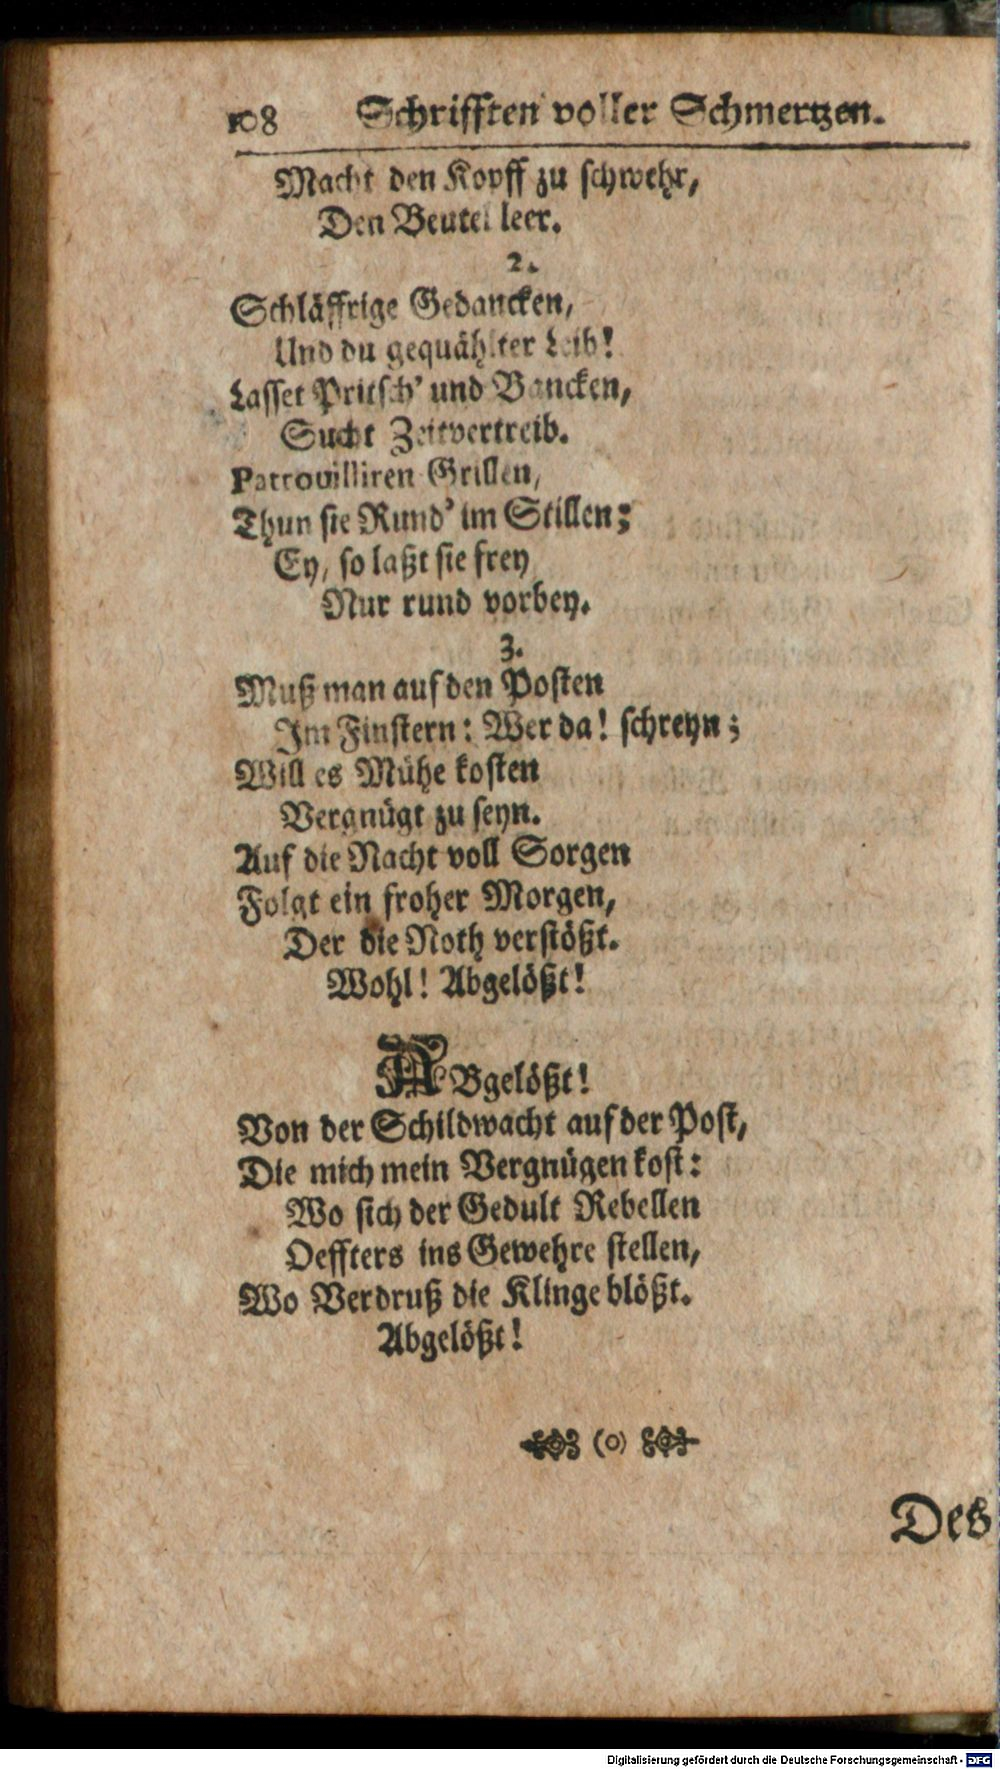 108 Schrifften voller Schmertzen.
Macht den Kopff zu schwehr,
Den Beutel leer.
2.
Schläffrige Gedancken,
Und du gequählter Leib!
Lasset Pritsch' und Bancken,
Sucht Zeitvertreib.
Patrouilliren Grillen,
Thun sie Rund' im Stillen;
Ey, so laßt sie frey
Nur rund vorbey.
3.
Muß man auf den Posten
Im Finstern: Wer da! schreyn;
Will es Mühe kosten
Vergnügt zu seyn.
Auf die Nacht voll Sorgen
Folgt ein froher Morgen,
Der die Noth verstößt.
Wohl! Abgelößt!
ABgelößt!
Von der Schildwacht auf der Post,
Die mich mein Vergnügen kost:
Wo sich der Gedult Rebellen
Oeffters ins Gewehre stellen,
Wo Verdruß die Klinge blößt.
Abgelößt!
(o)
Des
Digitalisierung gefördert durch die Deutsche Forschungsgemeinschaft - DFG